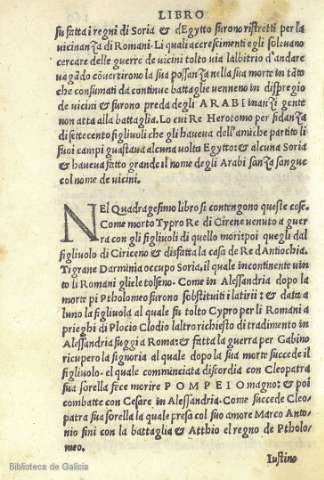 LIBRO
fu fatta i regni di Soria & dEgytto furono ristretti per la
vicinanza di Romani. Li quali accrescimenti egli soleuano
cercare delle guerre de vicini tolto via lalbitrio d'andare
vagãdo cõuertirono la sua possanza nella sua morte in tãto
che consumati da continue battaglie venneno in dispregio
de vicini & furono preda degli ARABI inanzi gente
non atta alla battaglia. Lo cui Re Herotomo per fidanza
di settecento figliuoli che gli haueua dell'amiche partito li
suoi campi guastaua alcuna uolta Egytto: & alcuna Soria
& haueua fatto grande il nome degli Arabi sanza sangue
col nome de vicini.
NEl Quadragesimo libro si contengono queste cose.
Come morto Typro Re di Cirene venuto a guer
ra con gli figliuoli di quello mori: poi quegli dal
figliuolo di Ciriceno & disfatta la casa de Re d'Antiochia.
Tigrane Darminia occupo Soria, il quale incontinente uin
to li Romani gliele tolseno. Come in Alessandria dopo la
morte pi Ptholomeo furono sobstituiti i latirii: & data a
luno la figliuola al quale fu tolto Cypro per li Romani a
prieghi di Plocio Clodio laltro richiesto di tradimento in
Alessandria fuggi a Roma: & fatta la guerra per Gabino
ricupero la signoria al quale dopo la sua morte succede il
figliuolo. el quale comminciata discordia con Cleopatra
sua sorella fice morire POMPEIO magno: & poi
combatte con Cesare in Alessandria. Come succede Cleo-
patra sua sorella la quale presa col suo amore Marco Anto-
nio fini con la battaglia & Atthio el regno de Ptholo-
meo.
Iustino
Biblioteca de Galicia